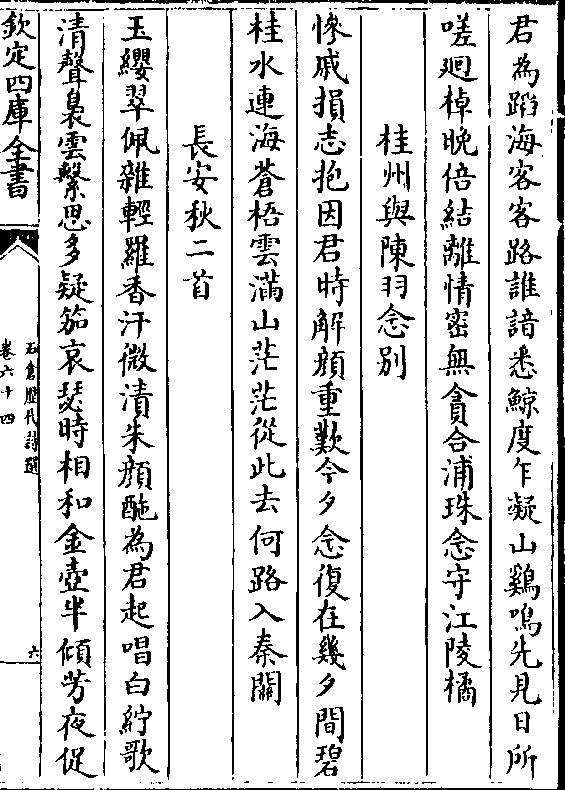 君為蹈海客客路誰諳悉鯨度乍凝山鷄鳴先見日所
嗟廻棹晚倍結離情密無貪合浦珠念守江陵橘
桂州與陳羽念别
慘戚損志抱因君時解顔重歎今夕念復在幾夕間碧
桂水連海蒼梧雲滿山茫茫從此去何路入秦關
長安秋二首
玉纓翠佩雜輕羅香汗微漬朱顔酡為君起唱白紵歌
清聲裊雲繫思多凝笳哀瑟時相和金壺半傾芳夜促
欽定四庫全書
石倉歴代詩選
卷六十四
六